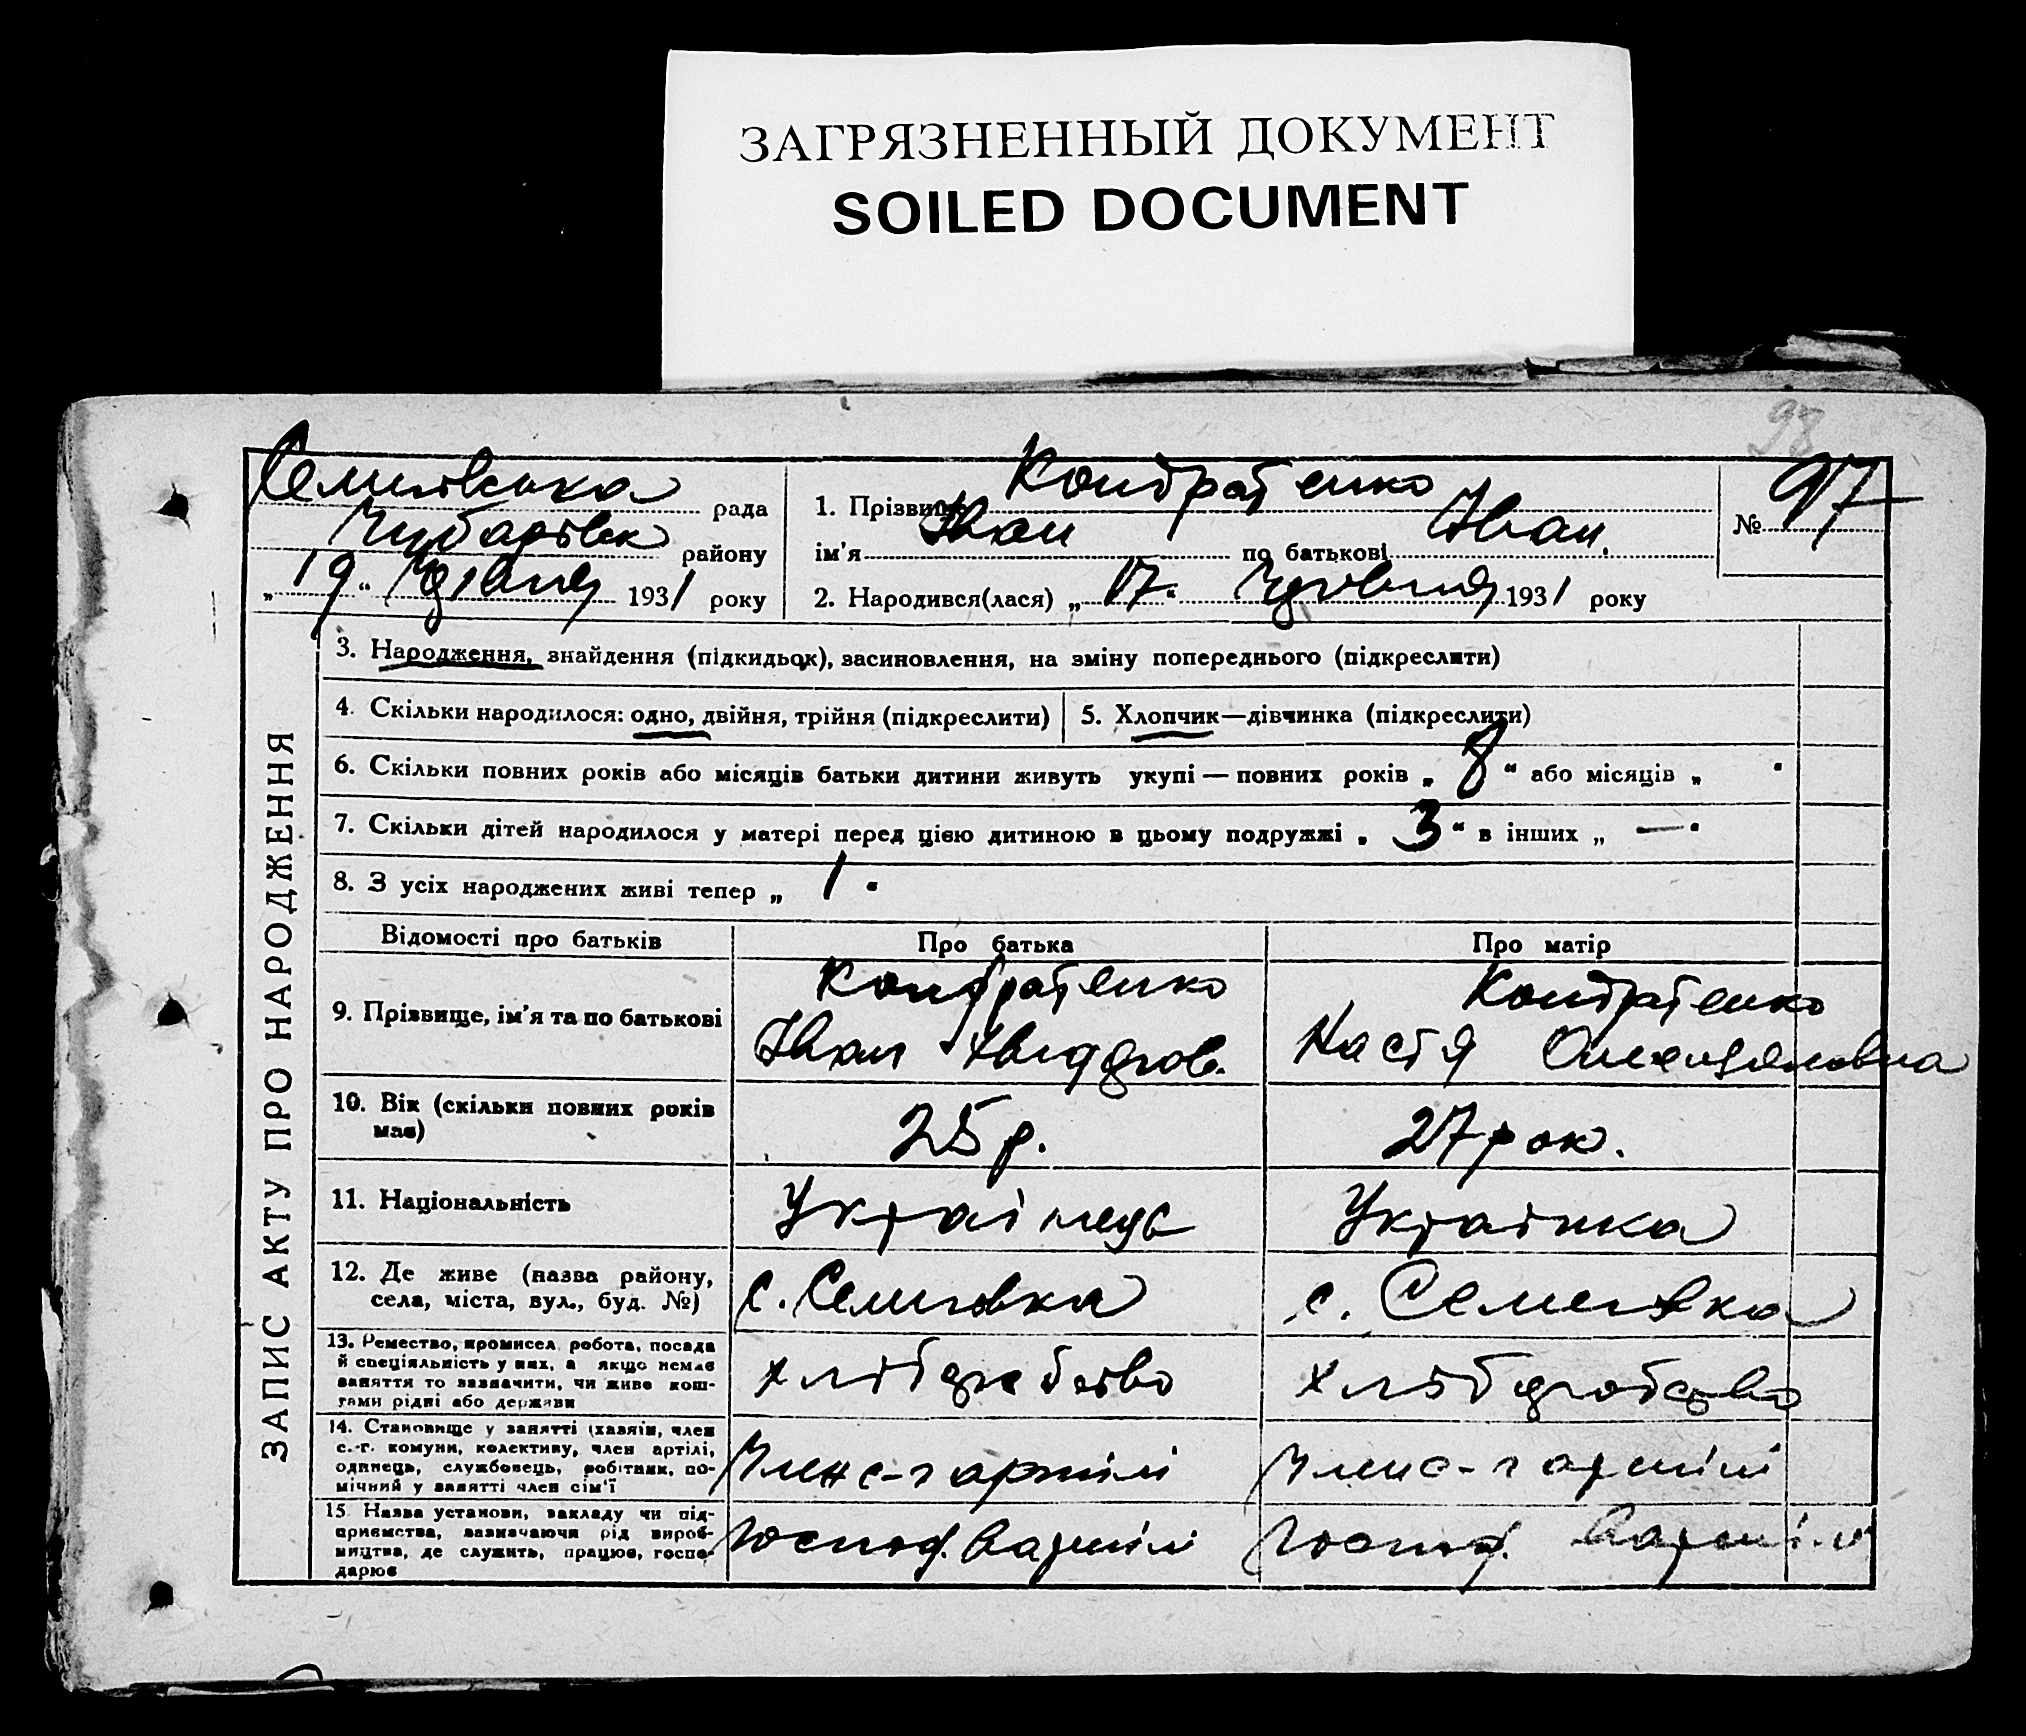 ЗАГРЯЗНЕННЫЙ ДОКУМЕНТ
SOILED DOCUMENT
98
Семиівська рада
Чубарівськ району
„ 19 “ Червня 1931 року
1. Прізвище Кондратенко
ім'я Іван по батькові Іван.
2. Народився(лася) „ 17 “ Червня 1931 року
№ 97
ЗАПИС АКТУ ПРО НАРОДЖЕННЯ
3. Народження, знайдення (підкидьок), засиновлення, на зміну попереднього (підкреслити)
4. Скільки народилося: одно, двійня, трійня (підкреслити)
5. Хлопчик—дівчинка (підкреслити)
6. Скільки повних років або місяців батьки дитини живуть укупі — повних років „ 8 “ або місяців „
7. Скільки дітей народилося у матері перед цією дитиною в цьому подружжі „ 3 “ в інших „ —
8. З усіх народжених живі тепер „ 1
Відомості про батьків
Про батька
Про матір
9. Прізвище, ім'я та по батькові
Кондратенко
Іван
Кондратенко
Настя
10. Вік (скільки повних років
має)
25 р.
27 рок.
11. Національність
Українець
Українка
12. Де живе (назва району,
села, міста, вул., буд. №)
с. Семиовка
с. Семеновка
13. Ремество, промисел, робота, посада
й спеціяльність у них, а якщо немає
заняття то зазначити, чи живе кош-
тами рідні або держави
хліборобство
хліборобство
14. Становище у занятті (хазяїн, член
с.-г. комуни, колективу, член артілі,
одинець, службовець, робітник, по-
мічний у занятті член сім'ї
Член с-г артілі
Член с-г артілі
15. Назва установи, закладу чи під-
приємства, зазначаючи рід вироб-
ництва, де служить, працює, госпо-
дарює
Господ. в артілі
Господ. в артілі